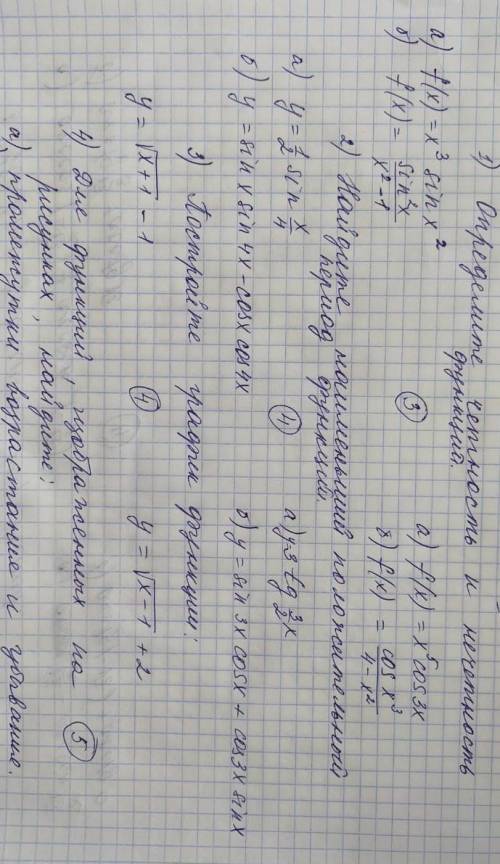 1) Определите четность и нечетность
функций.
а) f(x) = x³ sin x²
а) f(x) = x⁵ cos 3x
б) f(x) = sin 3x / x² - 1
③
б) f(x) = cos x³ / 4 - x²
2) Найдите наименьший положительный
период функций.
а) y = 1/2 sin x/4
④
а) y=3 tg 3/2 x
б) y = sin x sin 4x - cos x cos 4x
б) y = sin 3x cos x + cos 3x sin x
3) Постройте график функции:
y = √x+1 - 1
④
y = √x-1 + 2
4) Для функций, изображенных на
⑤
рисунках, найдите:
а) промежутки возрастание и убывание.